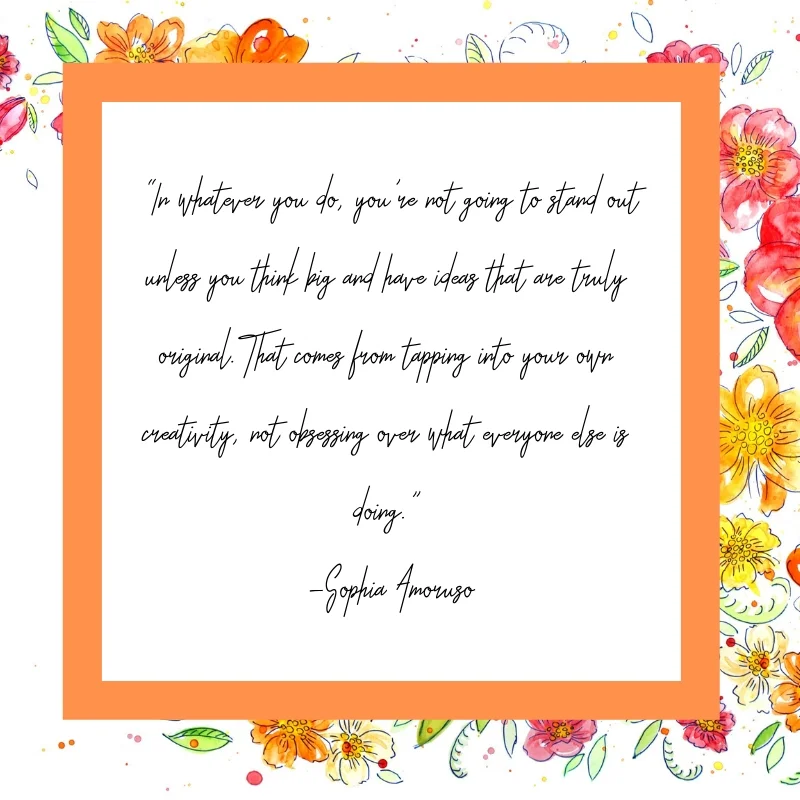 "In whatever you do, you're not going to stand out
unless you think big and have ideas that are truly
original. That comes from tapping into your own
creativity, not obsessing over what everyone else is
doing."
-Sophia Amoruso